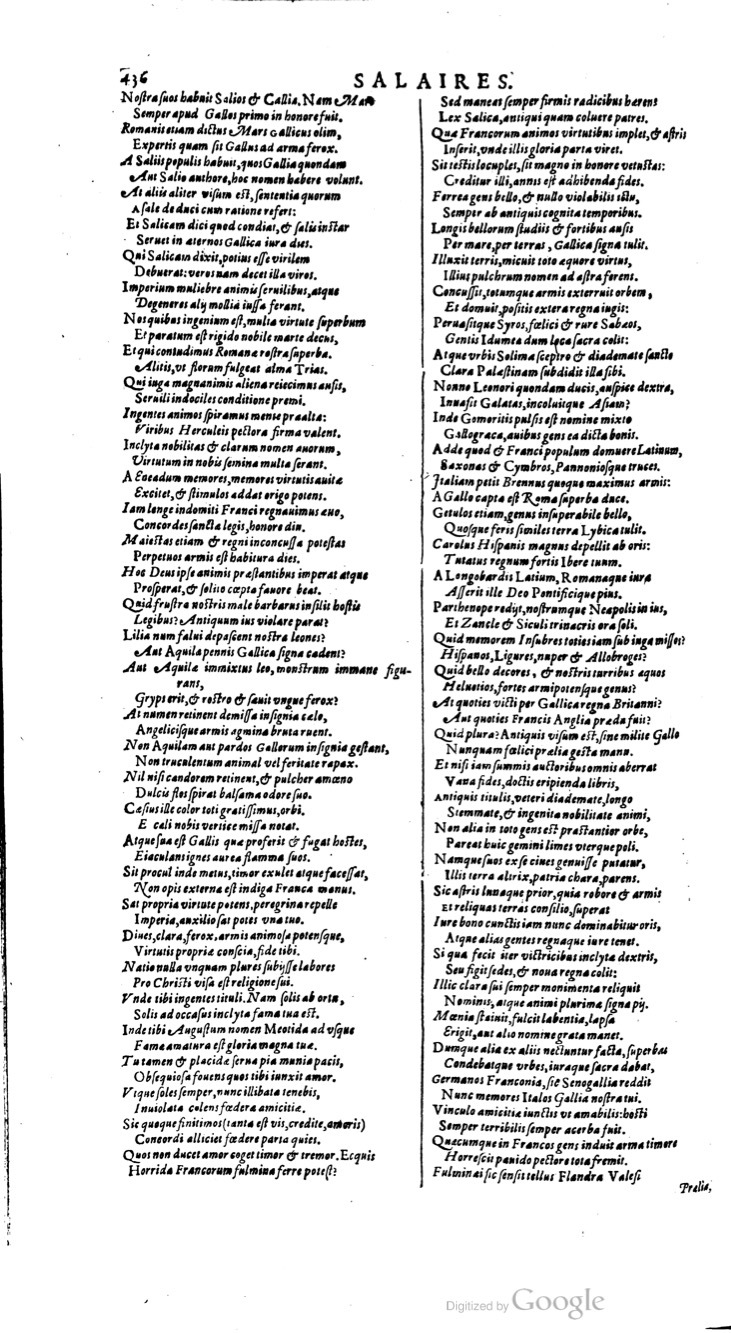 436
SALAIRES.
Nostra suos habuit Salios & Gallia. Nam Mars
Semper apud Gallos primo in honore fuit.
Romanis etiam dictus Mars Gallicus olim,
Expertis quam sit Gallus ad arma ferox.
A Saliis populis habuit, quos Gallia quondam
Aut Salio authore, hoc nomen habere volunt.
At aliis aliter visum est, sententia quorum
A sale deduci cum ratione refert:
Et Salicam dici quod condiat, & salis instar
Seruet in æternos Gallica iura dies.
Qui Salicam dixit, potius esse virilem
Debuerat: veros nam decet illa viros.
Imperium muliebre animis seruilibus, atque
Degeneres alij mollia iussa ferant.
Nos quibus ingenium est, multa virtute superbum
Et paratum est rigido nobile marte decus,
Et qui contudimus Romanæ rostra superba.
Alitis, vt florum fulgeat alma Trias.
Qui iuga magnanimis aliena reiecimus ausis,
Seruili indociles conditione premi.
Ingentes animos spiramus mense præalta:
Viribus Herculeis pectora firma valent.
Inclyta nobilitas & clarum nomen auorum,
Virtutum in nobis semina multa serant.
A Eoeadum memores, memores virtutis auitæ
Excitet, & stimulos addat origo potens.
Iam longe indomiti Franci regnauimus æuo,
Concordes sancta legis, honore diu.
Maiestas etiam & regni inconcussa potestas
Perpetuos armis est habitura dies.
Hoc Deus ipse animis præstantibus imperat atque
Prosperat, & solito cœpta fauore beat.
Quid frustra nostris male barbarus insilit hostis
Legibus? Antiquum ius violare parat?
Lilia num falui depascent nostra leones?
Aut Aquila pennis Gallica signa cadent?
Aut Aquilæ immixtus leo, monstrum immane figu-
rans,
Gryps erit, & rostro & sauit vngue ferox?
At numen retinent demissa insignia cælo,
Angelicisque armis agmina bruta ruent.
Non Aquilam aut pardos Gallorum insignia gestant,
Non truculentum animal vel feritate rapax.
Nil nisi candorem retinent, & pulcher amœno
Dulcis flos spirat balsama odore suo.
Cæsius ille color toti gratissimus, orbi.
E cali nobis vertice missa notat.
Atque sua est Gallis quæ proferit & fugat hostes,
Eiaculans ignes aurea flamma suos.
Sit procul inde metus, timor exulet atque facessat,
Non opis externa est indiga Franca manus.
Sat propria virtute potens, peregrina repelle
Imperia, auxilio sat potes vna tuo.
Diues, clara, ferox, armis animosa potensque,
Virtutis propriæ conscia, fide tibi.
Natio nulla vnquam plures subijsse labores
Pro Christi visa est religione sui.
Vnde tibi ingentes tituli. Nam solis ab ortu,
Solis ad occasus inclyta fama tua est.
Inde tibi Augustum nomen Meotida ad vsque
Fama amatura est gloria magna tuæ.
Tutamen & placidæ serua pia munia pacis,
Obsequiosa fouens quos tibi iunxit amor.
Vtque soles semper, nunc illibata tenebis,
Inuiolata colens fœdera amicitiæ.
Sic quoque finitimos (tanta est vis, credite, amoris)
Concordi alliciet fœdere parta quies.
Quos non ducet amor coget timor & tremor. Ecquis
Horrida Francorum fulmina ferre potest?
Sed maneat semper firmis radicibus hærens
Lex Salica, antiqui quam coluere patres.
Quæ Francorum animos virtutibus implet, & astris
Inserit, vnde illis gloria parta viret.
Sit testis locuples, sit magno in honore vetustas:
Creditur illi, annis est adhibenda fides.
Ferrea gens bello, & nullo violabilis ictu,
Semper ab antiquis cognita temporibus.
Longis bellorum studiis & fortibus ausis
Per mare, per terras, Gallica signa tulit.
Illuxit terris, micuit toto æquore virtus,
Illius pulchrum nomen ad astra ferens.
Concussit, totumque armis exterruit orbem,
Et domuit, positis extera regna iugis:
Peruasitque Syros, fœlici & rure Sabæos,
Gentis Idumea dum loca sacra colit:
Atque vrbis Solima sceptro & diademate sancto
Clara Palæstinam subdidit illa sibi.
Nonne Leonori quondam ducis, auspice dextra,
Inuasit Galatas, incoluitque Asiam?
Inde Gomeritis pulsis est nomine mixto
Gallograca, auibus gens ea dicta bonis.
Adde quod & Franci populum domuere Latinum,
Saxonas & Cymbros, Pannoniosque truces.
Italiam petit Brennus quoque maximus armis:
A Gallo capta est Roma superba duce.
Getulos etiam, genus insuperabile bello,
Quosque feris similes terra Lybica tulit.
Carolus Hispanis magnus depellit ab oris:
Tutatus regnum fortis Ibere tuum.
A Longobardis Latium, Romanaque iura
Asserit ille Deo Pontificique pius.
Parthenope redijt, nostrumque Neapolis in ius,
Et Zancle & Siculi trinacris ora soli.
Quid memorem Insubres toties iam sub iuga missos?
Hispanos, Ligures, nuper & Allobroges?
Quid bello decores, & nostris turribus æquos
Heluetios, fortes armipotensque genus?
At quoties victi per Gallica regna Britanni?
Aut quoties Francis Anglia præda fuit?
Quid plura? Antiquis visum est, sine milite Gallo
Nunquam fœlici prælia gesta manu.
Et nisi iam summis auctoribus omnis aberrat
Vana fides, doctis eripienda libris,
Antiquis titulis, veteri diademate, longo
Stemmate, & ingenita nobilitate animi,
Non alia in toto gens est præstantior orbe,
Pareat huic gemini limes vterque poli.
Namque suos ex se ciues genuisse putatur,
Illis terra altrix, patria chara, parens.
Sic astris lunaque prior, quia robore & armis
Et reliquas terras consilio, superat
Iure bono cunctis iam nunc dominabitur oris,
Atque alias gentes regnaque iure tenet.
Si qua fecit iter victricibus inclyta dextris,
Seu figit sedes, & noua regna colit:
Illic clara sui semper monimenta reliquit
Nominis, atque animi plurima signa pij.
Mœnia stituit, fulcit labentia, lapsa
Erigit, aut alio nomine grata manet.
Dumque alia ex aliis nectuntur facta, superbas
Condebatque vrbes, iuraque sacra dabat,
Germanos Franconia, sic Senogallia reddit
Nunc memores Italos Gallia nostra tui.
Vinculo amicitiæ iunctis vt amabilis: hosti
Semper terribilis semper acerba fuit.
Quæcumque in Francos gens induit arma timore
Horrescit pauido pectore tota fremit.
Fulmina si sic sensit tellus Flandra Valesi
Prælia,
Digitized by Google